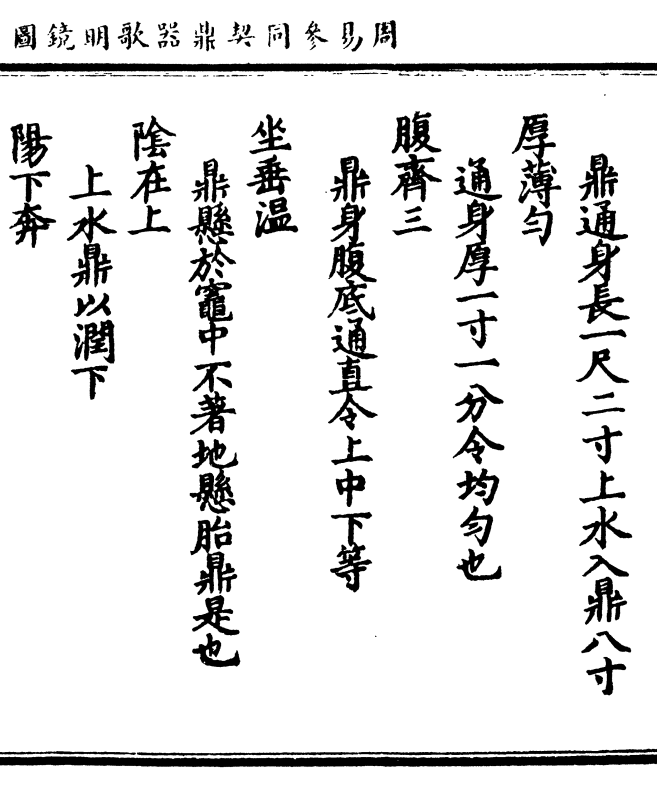 周易參同契鼎器歌明鏡圖
鼎通身長一尺二寸上水入鼎八寸
厚薄勻
通身厚一寸一分令均勻也
腹齊三
鼎身腹底通直令上中下等
坐垂温
鼎懸於竈中不著地懸胎鼎是也
陰在上
上水鼎以潤下
陽下奔